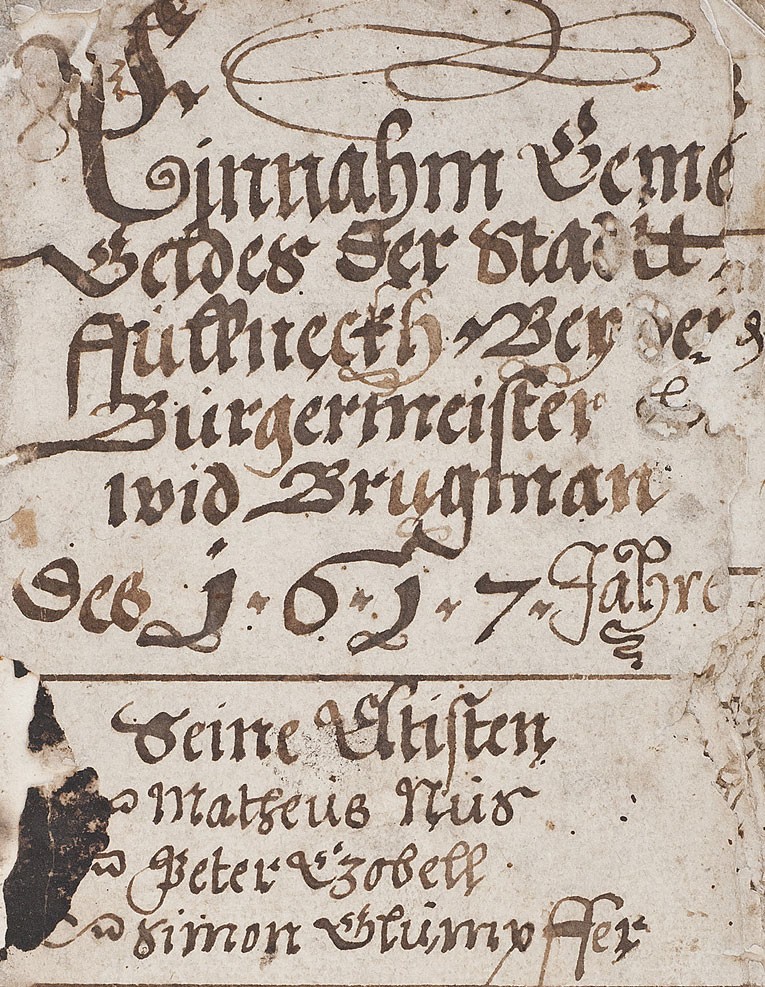 Einnahm Geme
Geldes der Stadtt
ffülkneckh Bey
Bürgermeister
wid Brugman
des 1 6 1 7 Jahre
Seine Eltisten
Matheus Nüs
Peter Czobell
Simon Glümpffer